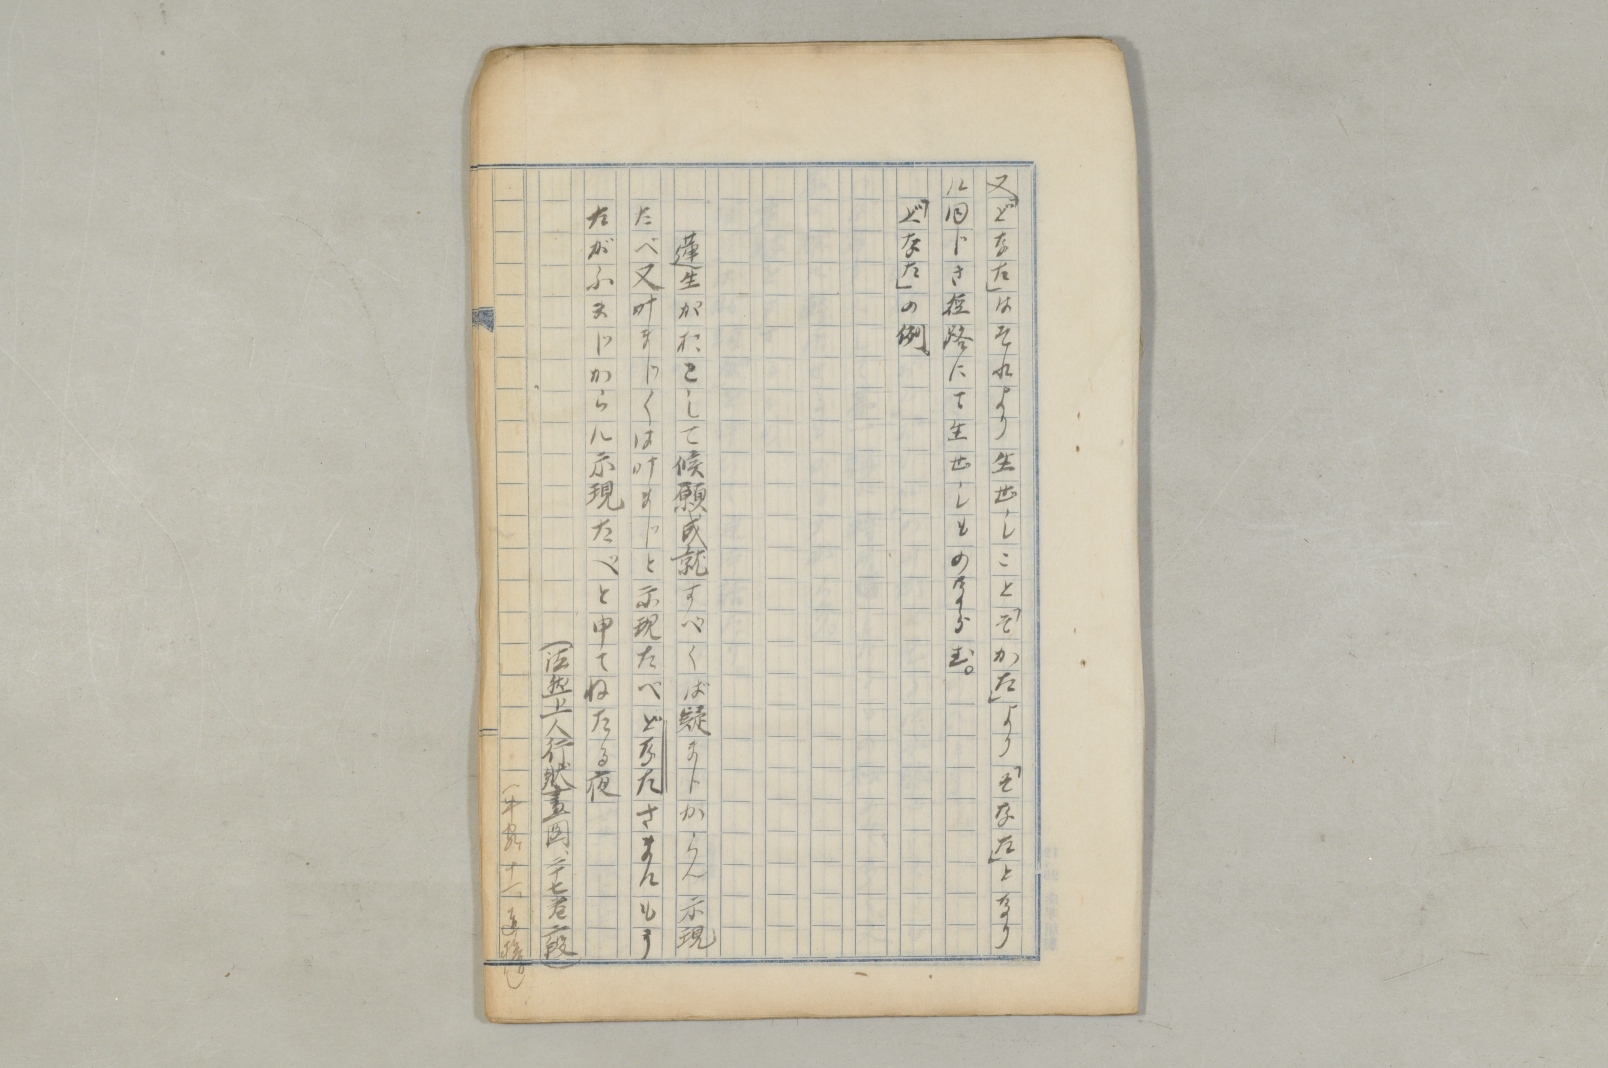 又「どなた」はそれより生ぜしこと「そかた」より「そなた」となり
ルに同じき径路にて生ぜしものならむ。
「どなた」の例
蓮生がおとして候願成就すべくば疑まじからん示現
たべ又叶まじくは叶まじと示現たべどなたさまにもう
たがふまじからん示現たべと申てねたる夜
(法然上人行状畫図、二十七巻二段)
(平家十一 遠矢)